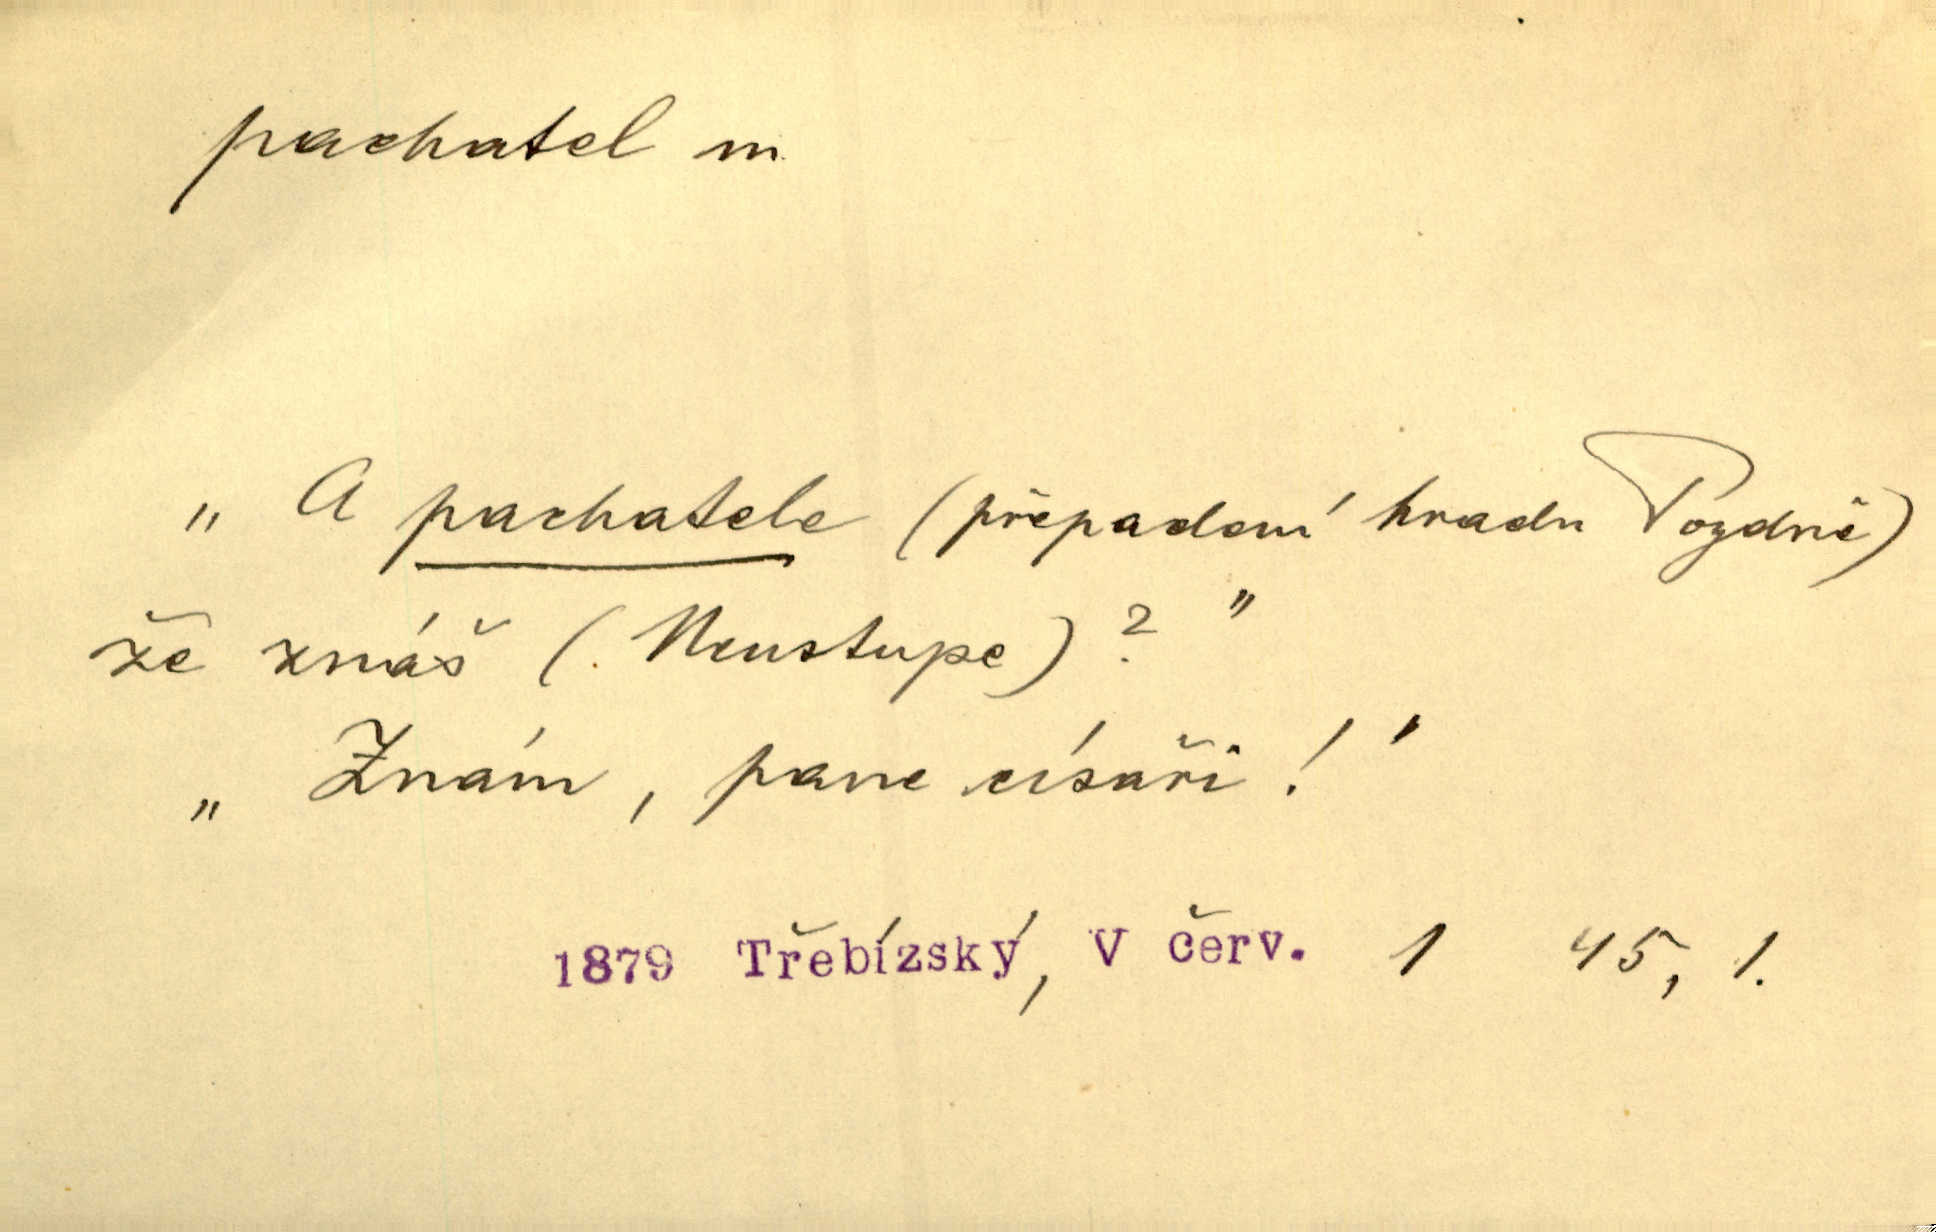 pachatel m.
„A pachatele (přepadení hradu Pozdně)
že znáš (Neustupe)?"
„Znám, pane císaři!'
1879 Třebízský, V červ. 1 45, 1.